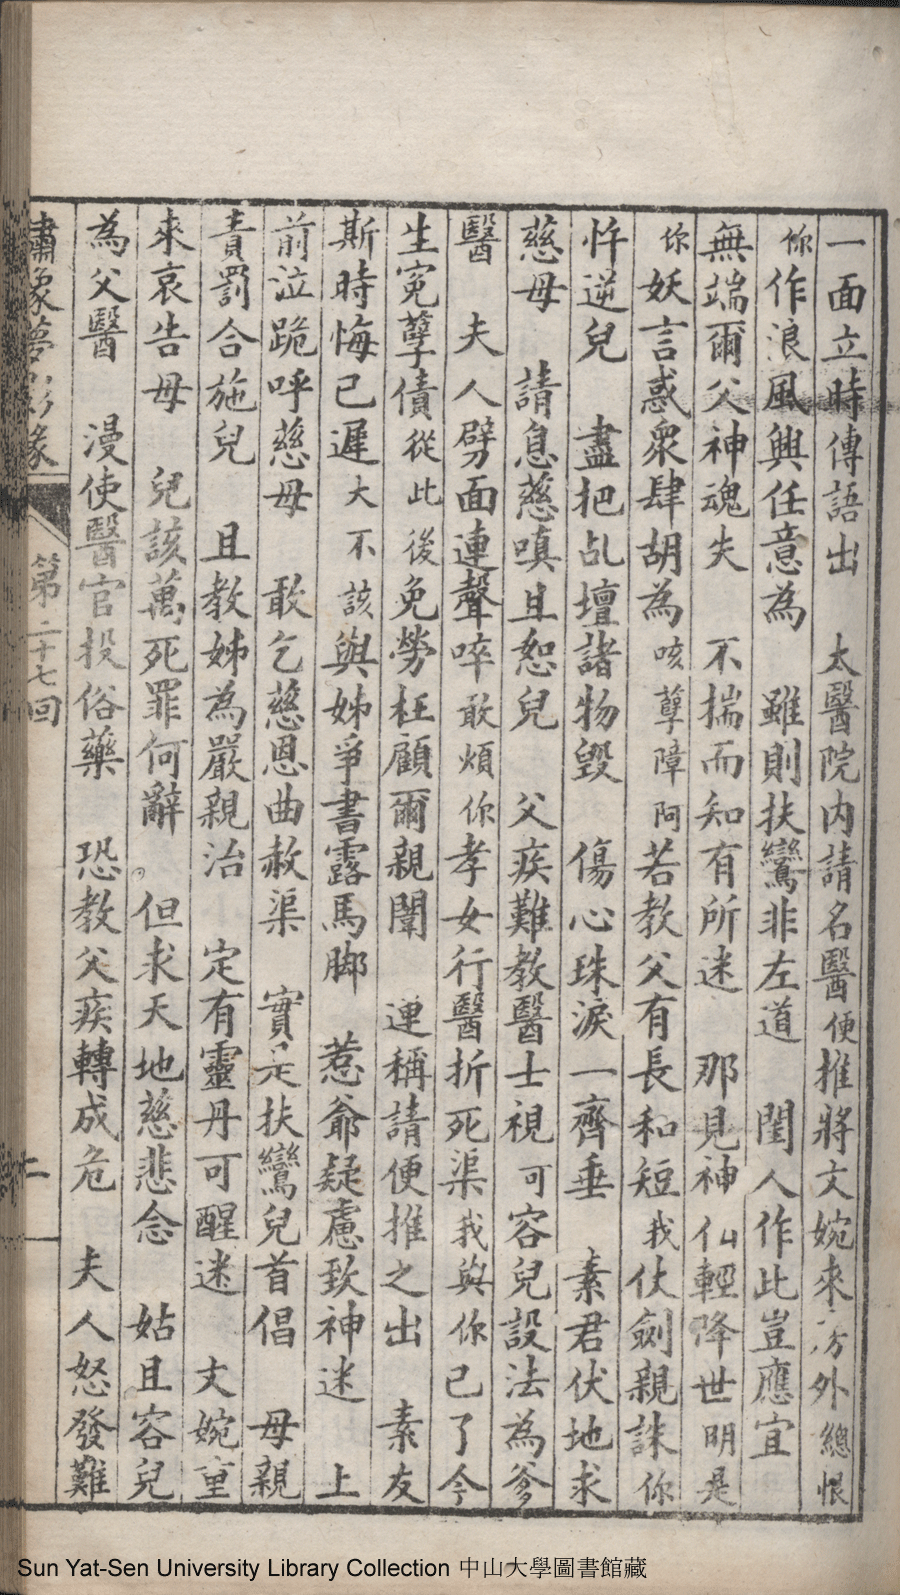 一面立時傳語出　太醫院内請名醫便推將文婉來　方外總恨
你作浪風興任意為　雖則扶鸞非左道　閨人作此豈應宜
無端爾父神魂失　不揣而知有所迷　那見神仙輕降世明是
你妖言惑衆肆胡為咳孽障阿若教父有長和短我仗劍親誅你
忤逆兒　盡把乩壇諸物毀　傷心珠淚一齊垂　素君伏地求
慈母　請息慈嗔且恕兒　父疾難教醫士視可容兒設法為爹
醫　夫人劈面連聲啐敢煩你孝女行醫折死渠我與你已了今
生冤孽債從此後免勞枉顧爾親闈　連稱請便推之出　素友
斯時悔已遲大不該與姊爭書露馬脚　惹爺疑慮致神迷　上
前泣跪呼慈母　敢乞慈恩曲赦渠　實是扶鸞兒首倡　母親
責罰合施兒　且教姊為嚴親治　定有靈丹可醒迷　文婉重
來哀告母　兒該萬死罪何辭　但求天地慈悲念　姑且容兒
為父醫　漫使醫官投俗藥　恐教父疾轉成危　夫人怒發難
繡像夢影緣　第二十七回　二
Sun Yat-Sen University Library Collection 中山大學圖書館藏